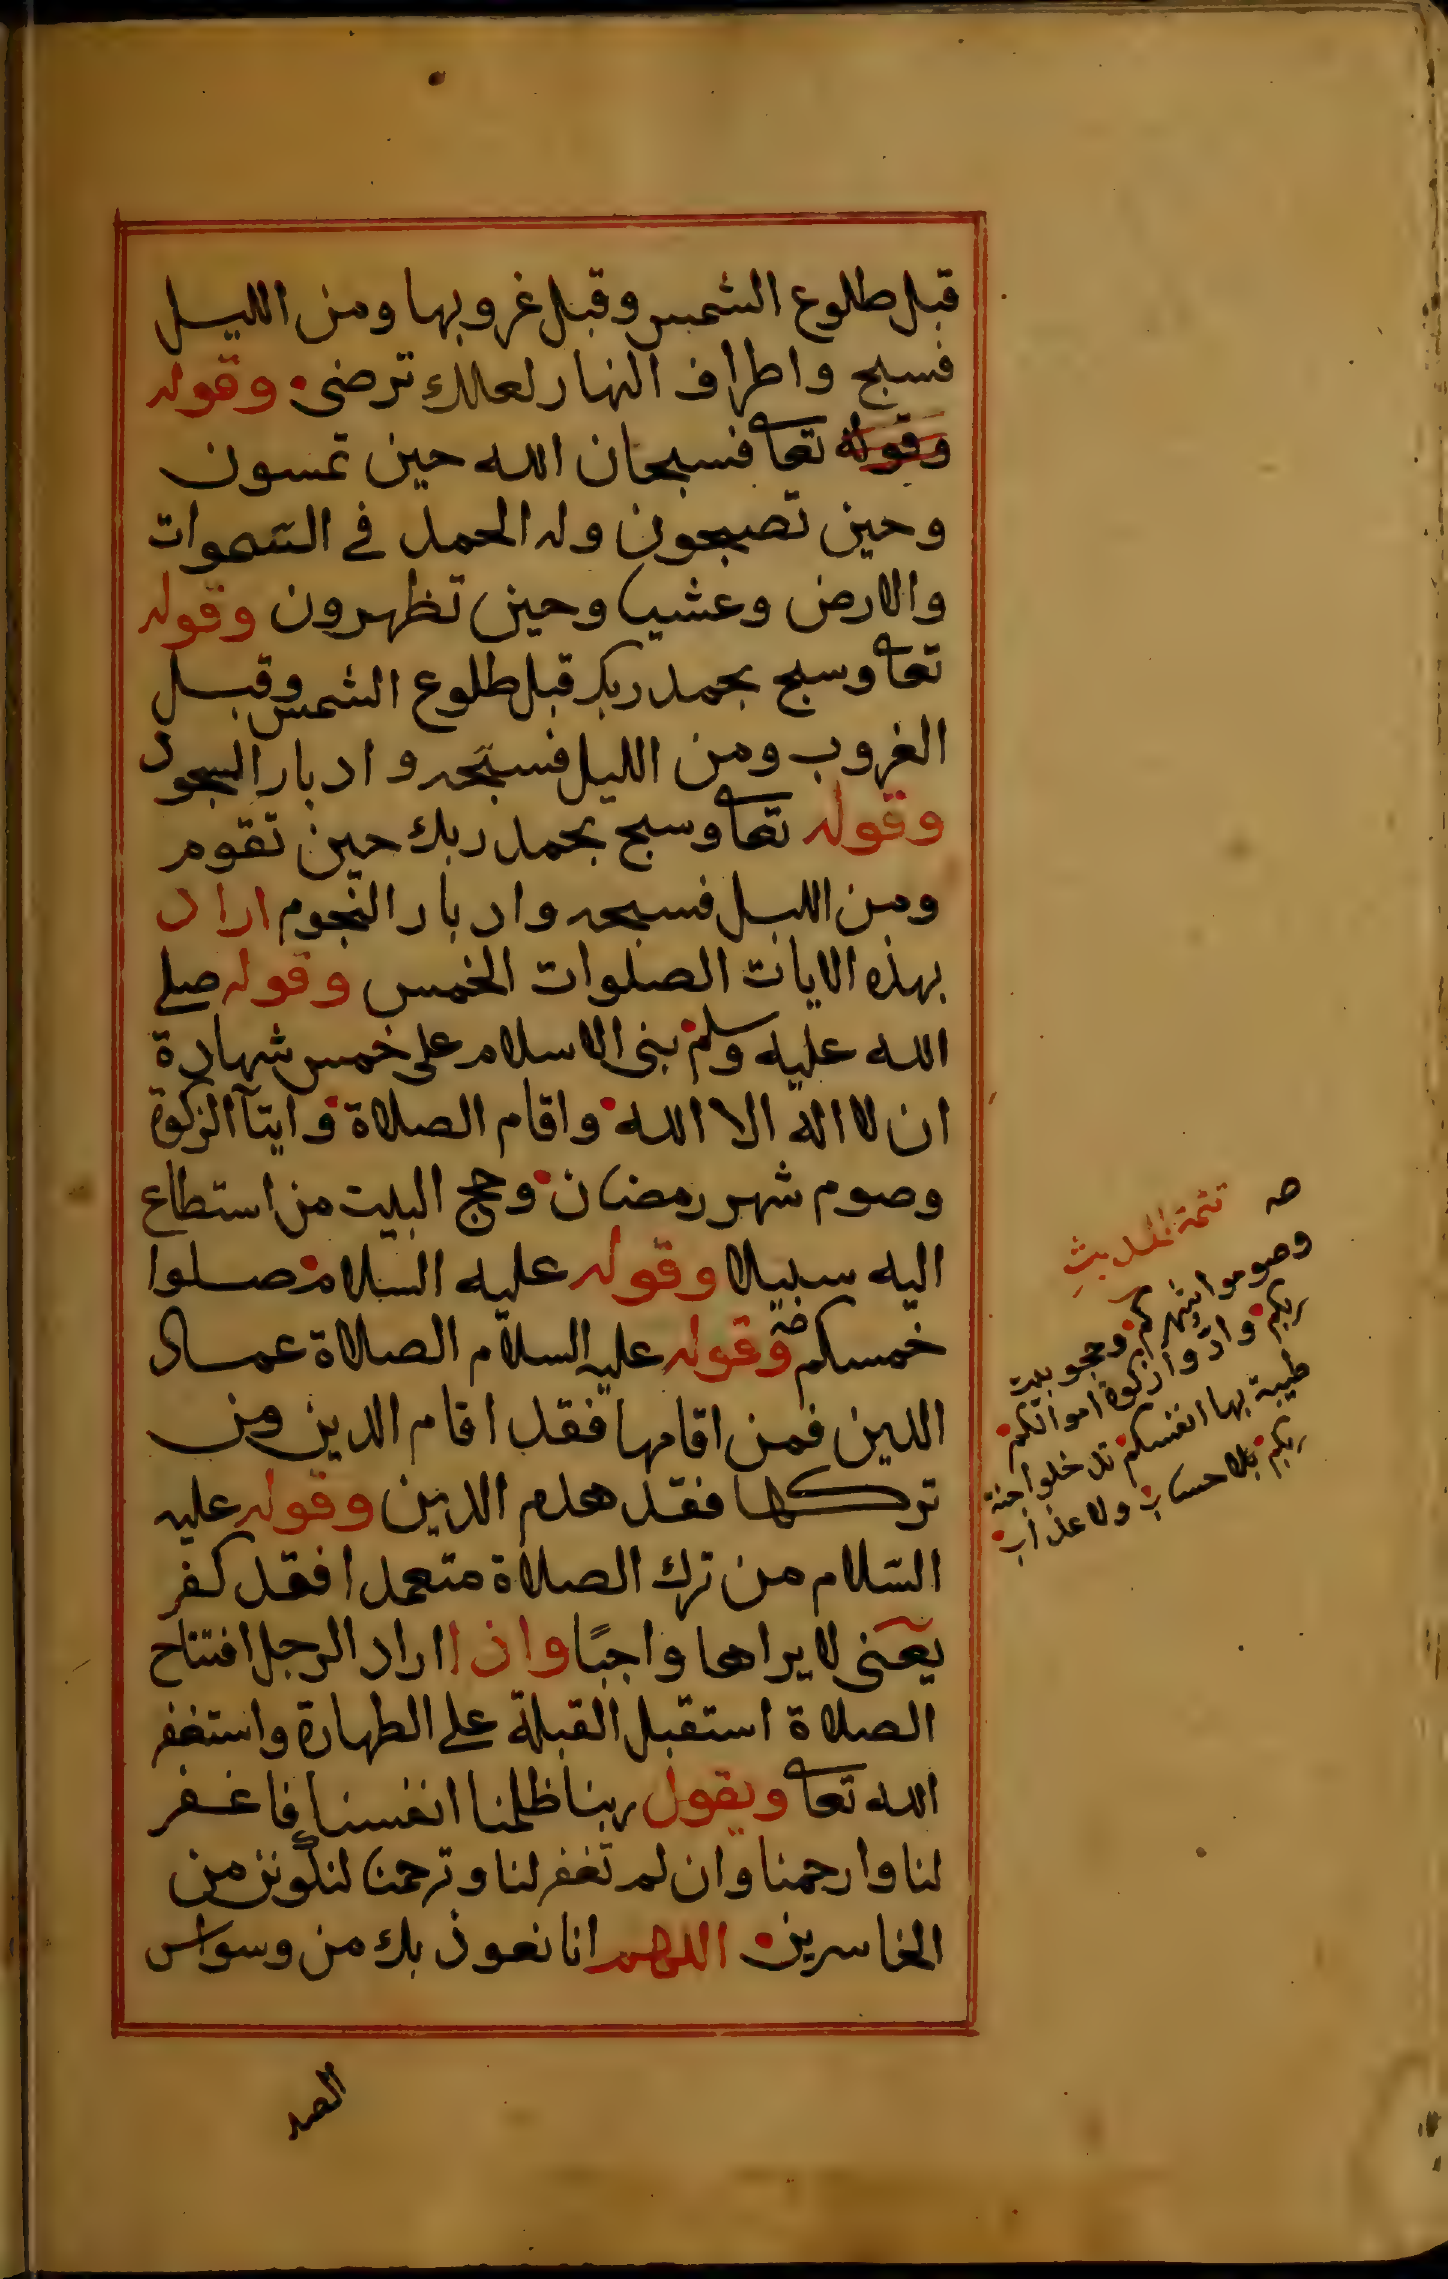 قبل طلوع الشمس وقبل غروبها ومن الليل
فسبح واطراف النهار لعلك ترضى وقوله
وقوله تعا فسبحان الله حين تمسون
وحين تصبحون وله الحمد في السموات
والارض وعشيا وحين تظهرون وقوله
تعا وسبح بحمد ربك قبل طلوع الشمس وقبل
الغروب ومن الليل فسبحه وادبار السجود
وقوله تعا وسبح بحمد ربك حين تقوم
ومن الليل فسبحه وادبار النجوم اراد
بهذه الايات الصلوات الخمس وقوله صلى
الله عليه وسلم بنى الاسلام على خمس شهادة
ان لا اله الا الله واقام الصلاة وايتآ الزكوة
وصوم شهر رمضان وحج البيت من استطاع
اليه سبيلا وقوله عليه السلام صلوا
خمسكم وقوله عليه السلام الصلاة عماد
الدين فمن اقامها فقد اقام الدين ومن
تركها فقد هدم الدين وقوله عليه
السلام من ترك الصلاة متعمدا فقد كفر
يعنى لا يراها واجبًا واذا اراد الرجل افتتاح
الصلاة استقبل القبلة على الطهارة واستغفر
الله تعا ويقول ربنا ظلمنا انفسنا فاغفر
لنا وارحمنا وان لم تغفر لنا وترحمنا لنكونن من
الخاسرين اللهم انا نعوذ بك من وسواس
صه تتمة الحديث
وصوموا شهركم وحجو بيت
ربكم وادوا زكوة اموالكم
طيبة بها انفسكم تدخلوا جنة
ربكم بلا حساب ولا عذاب
الصد